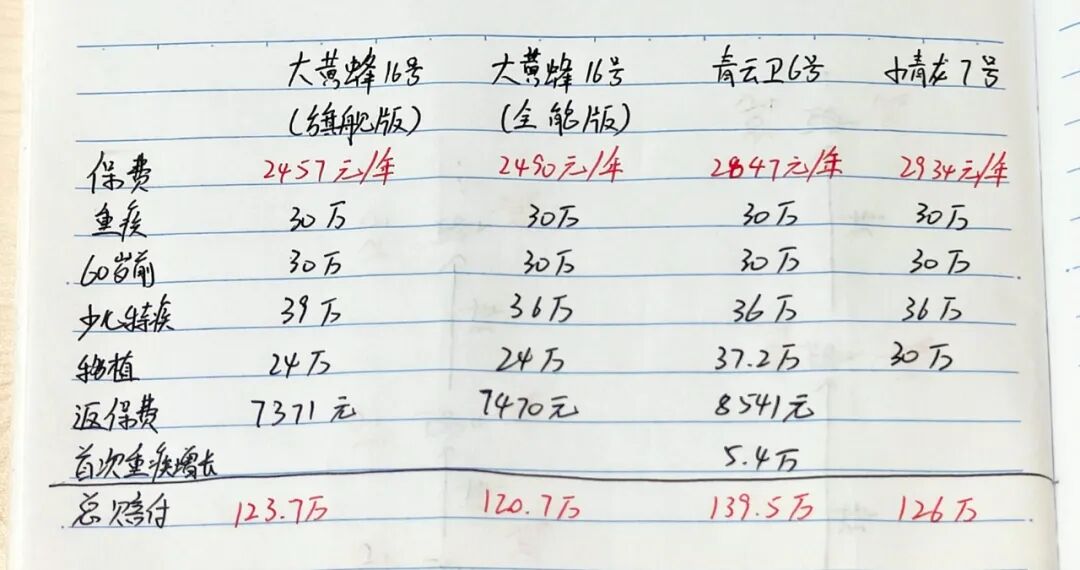 大黄蜂16号 大黄蜂16号 青云卫6号 小青龙7号
(旗舰版) (全能版)
保费 2457元/年 2490元/年 2847元/年 2934元/年
重疾 30万 30万 30万 30万
60岁前 30万 30万 30万 30万
少儿特疾 39万 36万 36万 36万
移植 24万 24万 37.2万 30万
返保费 7371元 7470元 8541元
首次重疾增长 5.4万
总赔付 123.7万 120.7万 139.5万 126万